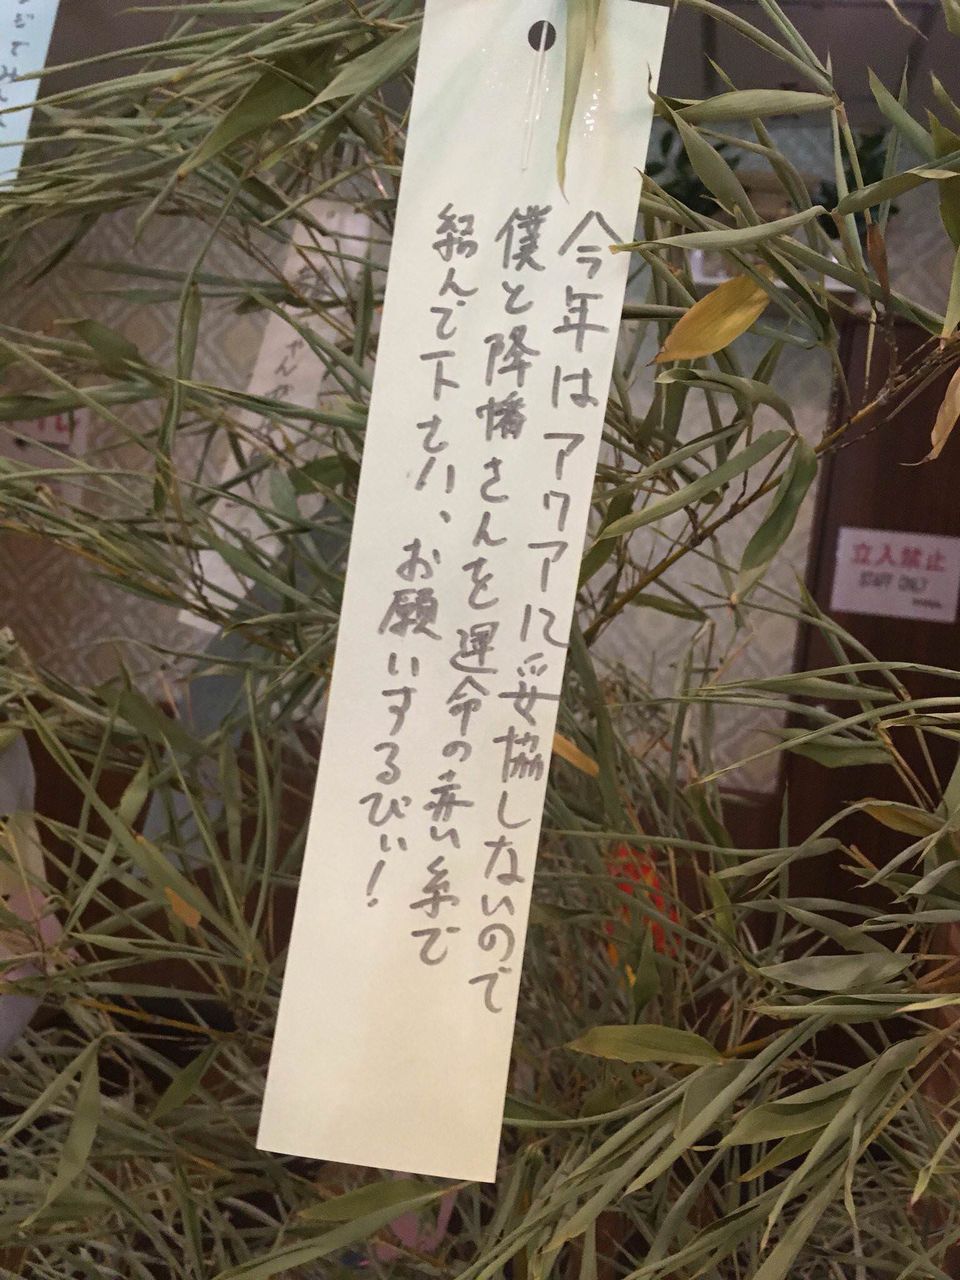 今年はアクアに妥協しないので
僕と降幡さんを運命の赤い糸で
結んで下さい、お願いするびぃ！
立入禁止
STAFF ONLY